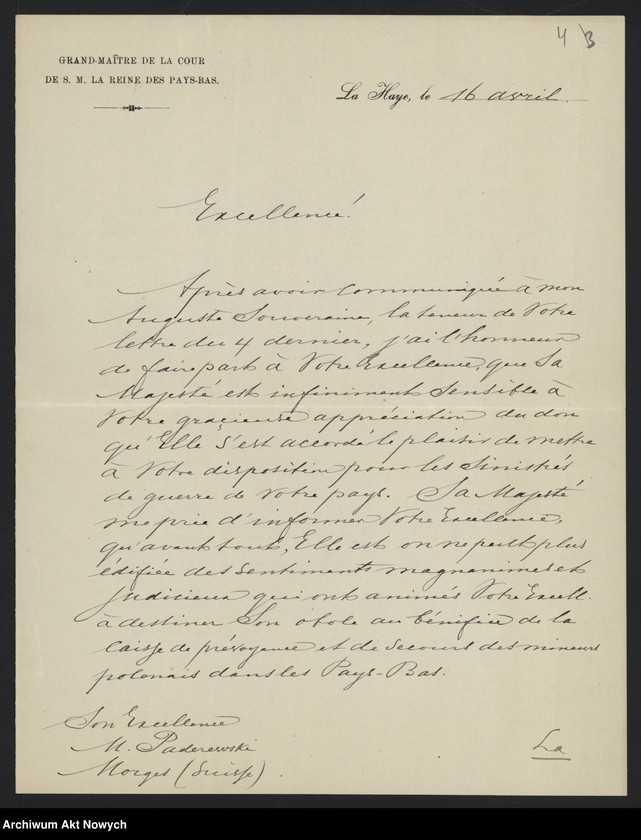 4 B
GRAND-MAÎTRE DE LA COUR
DE S. M. LA REINE DES PAYS-BAS.
La Haye, le 16 avril.
Excellence!
Après avoir communiquée à mon
Auguste Souveraine, la teneur de Votre
lettre du 4 dernier, j'ai l'honneur
de faire part à Votre Excellence, que Sa
Majesté est infiniment sensible à
Votre gracieuse appréciation du don
qu'Elle s'est accordé le plaisir de mettre
à Votre disposition pour les Sinistrés
de guerre de Votre pays. Sa Majesté
me prie d'informer Votre Excellence,
qu'avant tout, Elle est on ne peut plus
édifiée des sentiments magnanimes et
judicieux qui ont animés Votre Excell.
à destiner Son obole au bénéfice de la
caisse de prévoyance et de secours des mineurs
polonais dans les Pays-Bas.
Son Excellence
M. Paderewski
Morges (Suisse)
La
Archiwum Akt Nowych